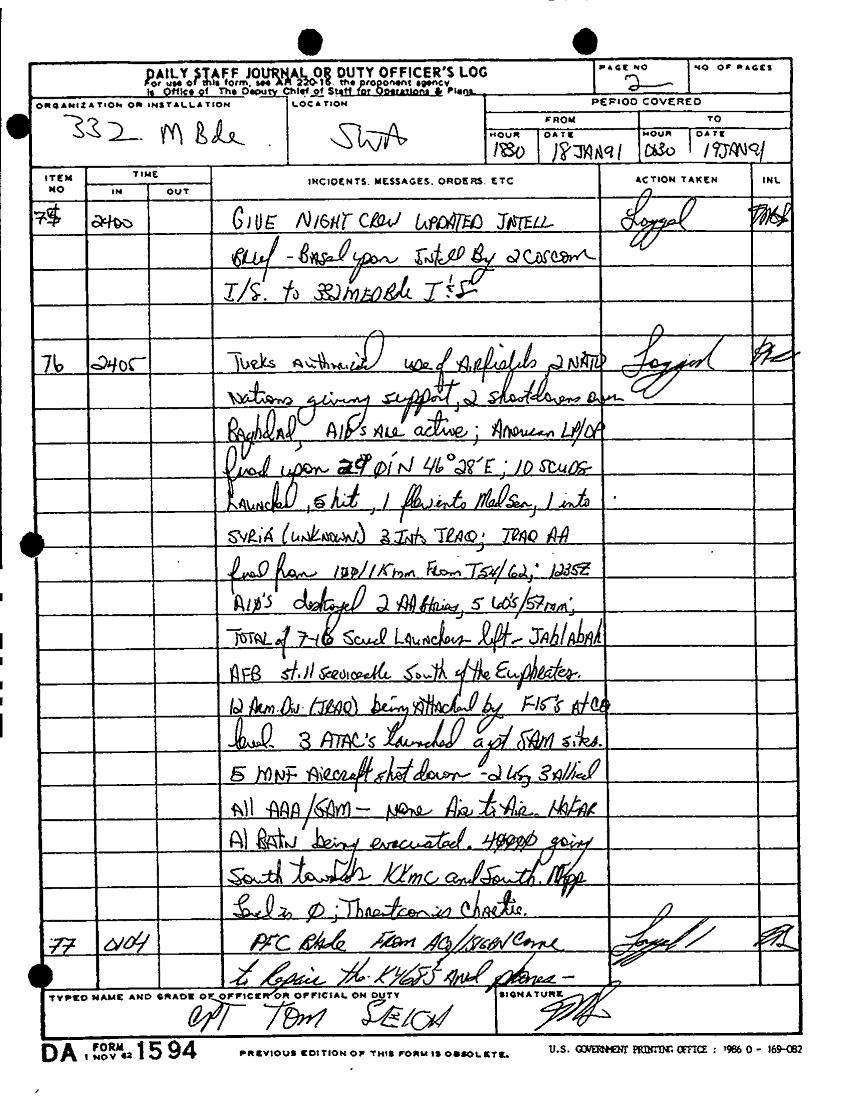 DAILY STAFF JOURNAL OR DUTY OFFICER'S LOG
For use of this form, see AR 220-15. the proponent agency
is Office of The Deputy Chief of Staff for Operations & Plans.
PAGE NO
2
NO OF PAGES
ORGANIZATION OR INSTALLATION
332 M Bde
LOCATION
SWA
PERIOD COVERED
FROM
TO
HOUR
1830
DATE
18 JAN 91
HOUR
0630
DATE
19 JAN 91
ITEM NO
TIME
IN
OUT
INCIDENTS, MESSAGES, ORDERS, ETC
ACTION TAKEN
INL
75 2400 GIVE NIGHT CREW UPDATED INTELL Logged
Brief - Based upon Intell By 2 COSCOM
I/S. to 332 MED Bde I & S
76 2405 Turks Authorized use of Airfields, 2 NATO Logged
Nations giving support, 2 shootdowns over
Baghdad, A10's Are active; American LP/OP
fired upon 29° 01'N 46° 28'E; 10 SCUDS
LAUNCHED, 5 hit, 1 flew into Med Sea, 1 into
SYRIA (UNKNOWN) 3 Into IRAQ; IRAQ AA
fired from 100/115mm From T54/62; 1235Z
A10's destroyed 2 AA Btries, 5 60's/57mm;
TOTAL of 7-16 Scud Launchers left - JABlAbAh
AFB still serviceable South of the Euphrates.
12 Arm. Div (IRAQ) being Attached by F15's At CO
level. 3 ATAC's launched agst SAM sites.
5 MNF Aircraft shot down - 2 US, 3 Allied
All AAA/SAM - None Air to Air. HAFAR
Al BATN being evacuated. 40000 going
South towards KKMC and South. Mopp
Level is 0; Threatcon is Charlie.
77 0104 PFC From come Logged
to Repair the KY68's and phones -
TYPED NAME AND GRADE OF OFFICER OR OFFICIAL ON DUTY
CPT TOM
SIGNATURE
DA FORM 1 NOV 62 1594
PREVIOUS EDITION OF THIS FORM IS OBSOLETE.
U.S. GOVERNMENT PRINTING OFFICE : 1986 O - 169-082